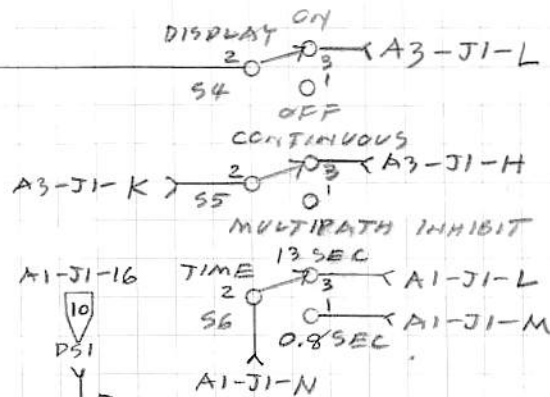 ON
DISPLAY
2
3
A3-J1-L
1
S4
OFF
CONTINUOUS
A3-J1-K
2
3
A3-J1-H
S5
1
MULTIPATH INHIBIT
A1-J1-16
TIME
13 SEC
2
3
A1-J1-L
10
S6
1
A1-J1-M
DS1
0.8 SEC
A1-J1-N